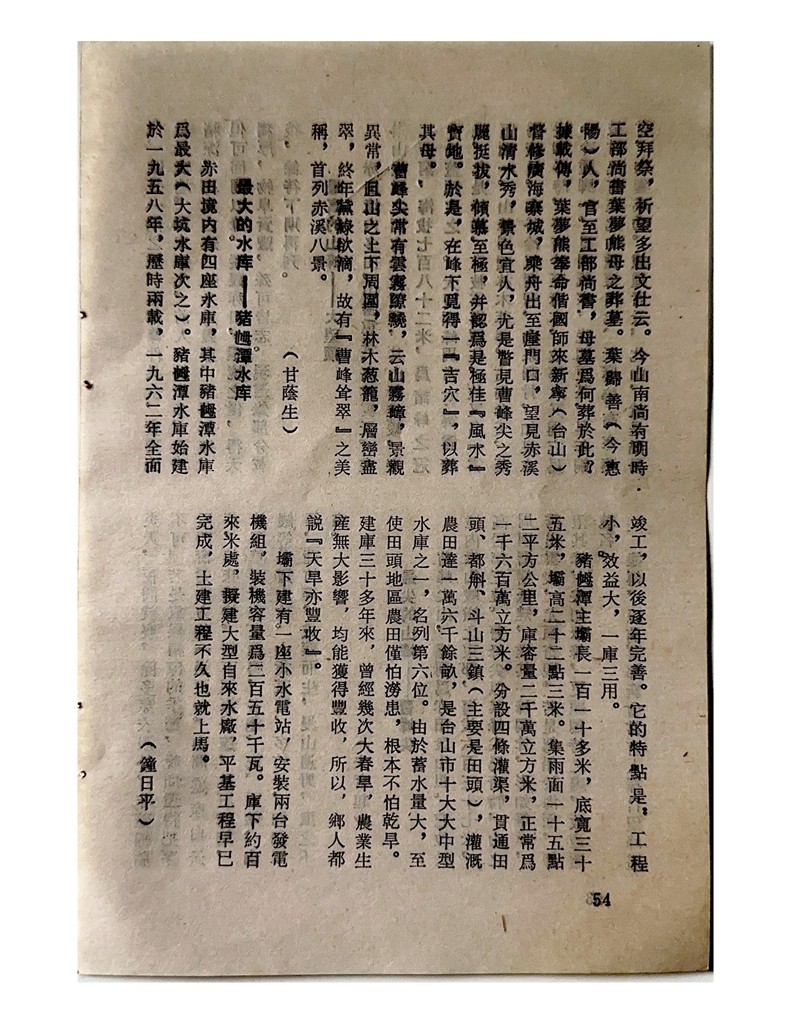 空拜祭，祈望多出文仕云。今山南尚有明時
工部尚書葉夢熊母之葬墓。葉歸善（今惠
陽）人，官至工部尚書，母墓爲何葬於此？
據載傳，葉夢熊奉命偕國師來新寧（台山）
督修廣海寨城，乘舟出至崖門口，望見赤溪
山清水秀，景色宜人，尤是瞥見曹峰尖之秀
麗挺拔，傾慕至極，并認爲是極佳『風水』
寶地。於是，在峰下覓得一『吉穴』，以葬
其母。
曹峰尖常有雲霧繚繞，云山霧嶂，景觀
異常，且山之上下周圍，林木葱蘢，層巒盡
翠，終年黛綠欲滴，故有『曹峰聳翠』之美
稱，首列赤溪八景。
（甘蔭生）
最大的水库——豬乸潭水库
赤田境内有四座水庫，其中豬乸潭水庫
爲最大（大坑水庫次之）。豬乸潭水庫始建
於一九五八年，歷時兩載，一九六二年全面
竣工，以後逐年完善。它的特點是，工程
小，效益大，一庫三用。
豬乸潭主壩長一百一十多米，底寬三十
五米，壩高二十二點三米。集雨面一十五點
二平方公里，庫容量二千萬立方米，正常爲
一千六百萬立方米。分設四條灌渠，貫通田
頭、都斛、斗山三鎮（主要是田頭），灌溉
農田達一萬六千餘畝，是台山市十大大中型
水庫之一，名列第六位。由於蓄水量大，至
使田頭地區農田僅怕澇患，根本不怕乾旱。
建庫三十多年來，曾經幾次大春旱，農業生
産無大影響，均能獲得豐收，所以，鄉人都
説『天旱亦豐收』。
壩下建有一座小水電站，安裝兩台發電
機組，裝機容量爲二百五十千瓦。庫下約百
來米處，擬建大型自來水廠，平基工程早已
完成，土建工程不久也就上馬。
（鐘日平）
54